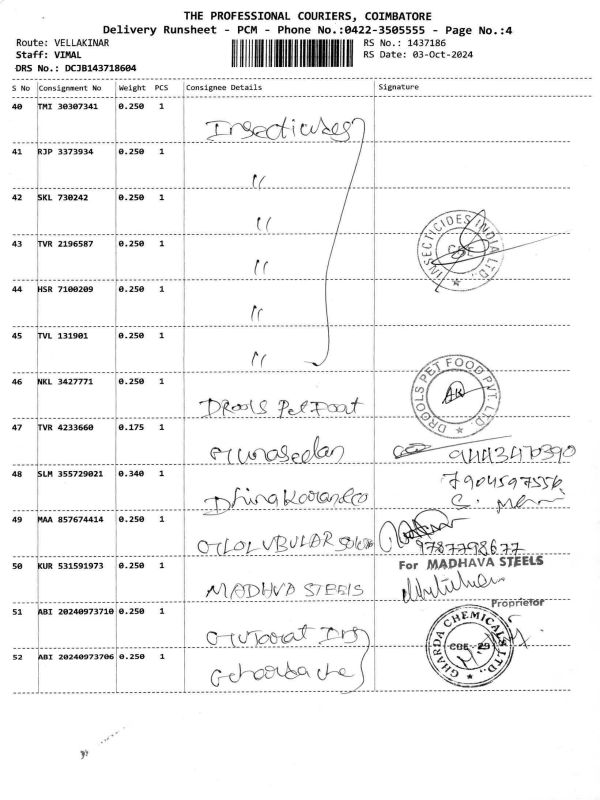 THE PROFESSIONAL COURIERS, COIMBATORE
Delivery Runsheet - PCM - Phone No.:0422-3505555 - Page No.:4
Route: VELLAKINAR
RS No.: 1437186
Staff: VIMAL
RS Date: 03-Oct-2024
DRS No.: DCJB143718604
S No Consignment No Weight PCS Consignee Details Signature
40 TMI 30307341 0.250 1
Insecticides
41 RJP 3373934 0.250 1
"
42 SKL 730242 0.250 1
"
INSECTICIDES INDIA LTD.
CBE
43 TVR 2196587 0.250 1
"
44 HSR 7100209 0.250 1
"
45 TVL 131901 0.250 1
"
46 NKL 3427771 0.250 1
Drools Pet Foot
DROOLS PET FOOD PVT. LTD.
47 TVR 4233660 0.175 1
9443470390
48 SLM 355729021 0.340 1
7904597556
49 MAA 857674414 0.250 1
9787798677
50 KUR 531591973 0.250 1
For MADHAVA STEELS
MADHVA STEELS
Proprietor
51 ABI 20240973710 0.250 1
GHARDA CHEMICALS LTD.
CBE - 29
52 ABI 20240973706 0.250 1